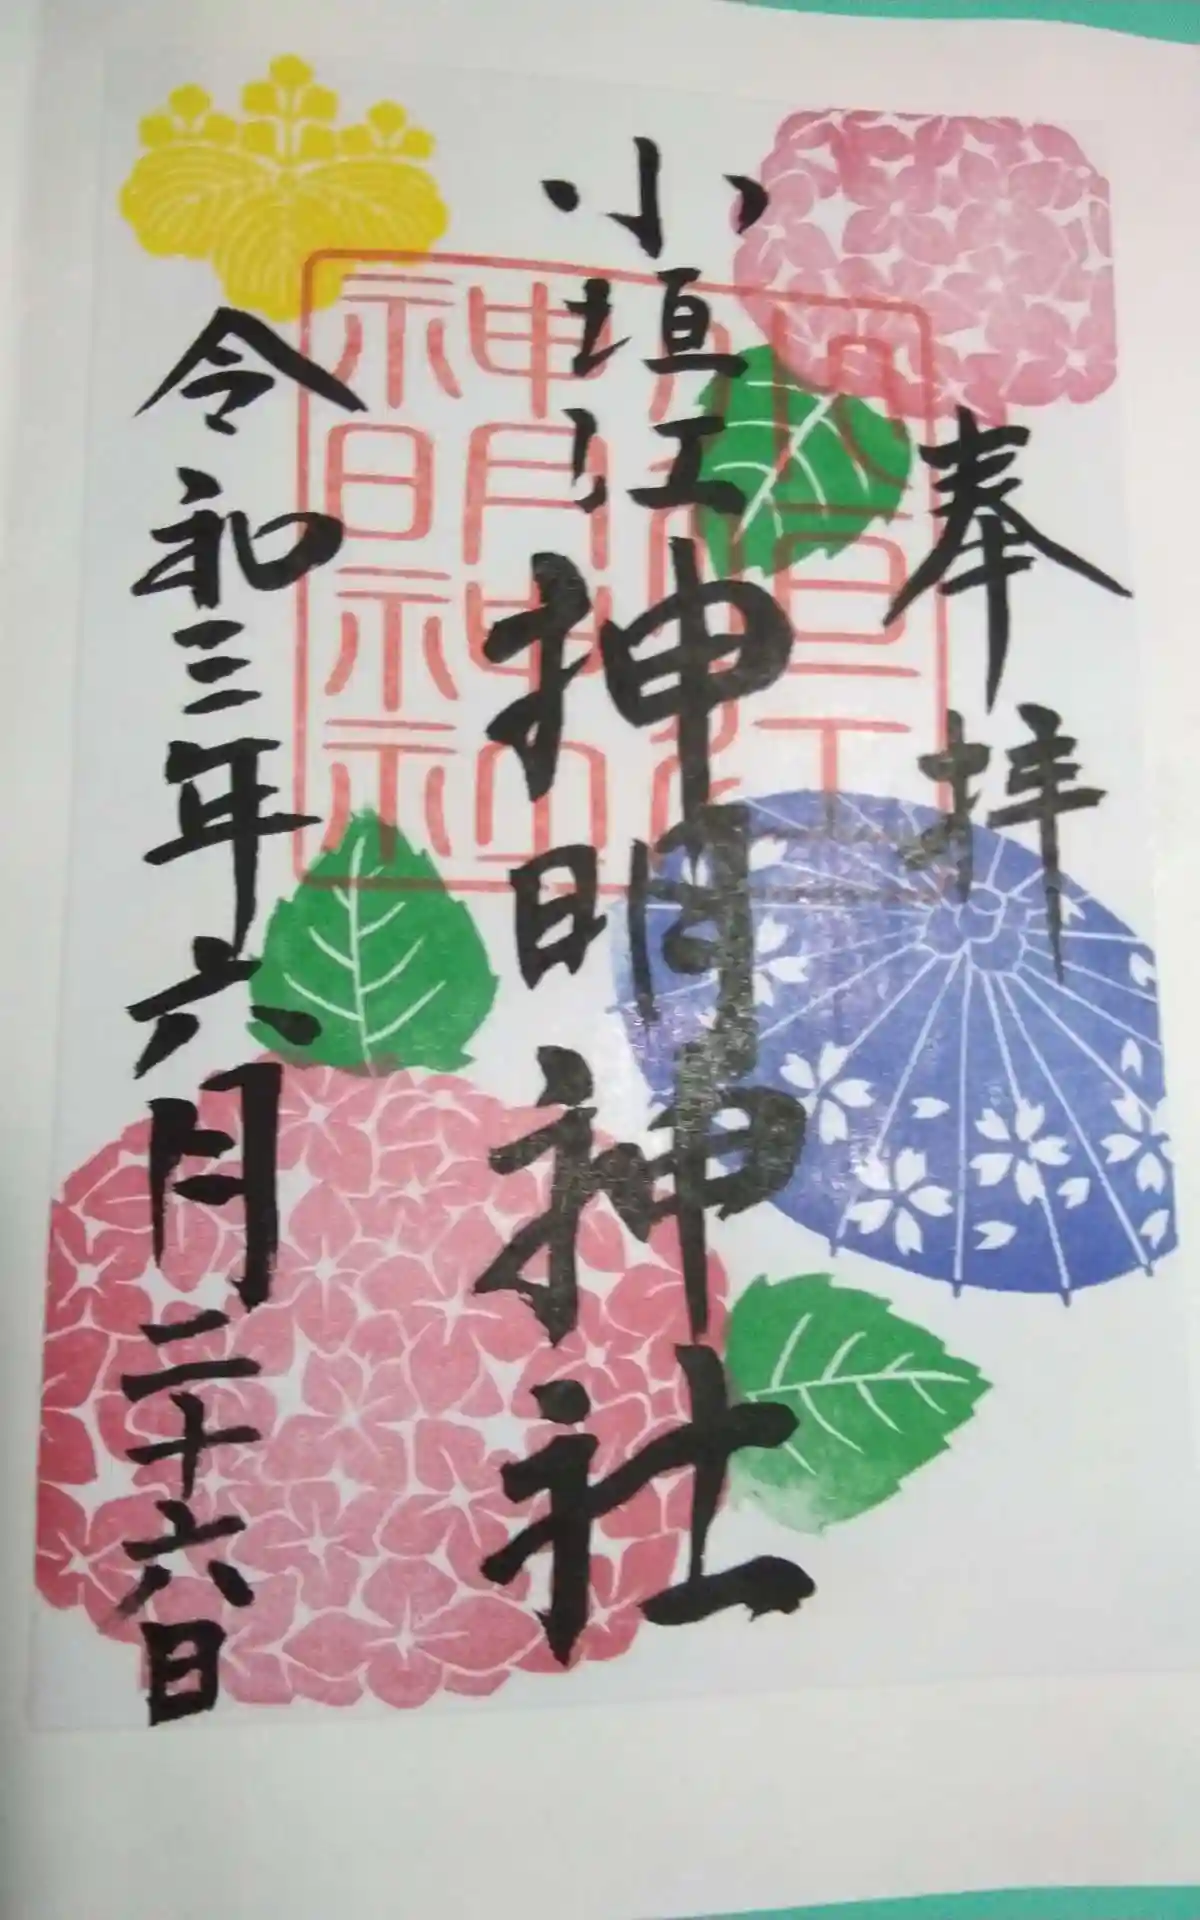 奉拝
小垣江神明神社
小垣江神明神社
令和三年六月二十六日